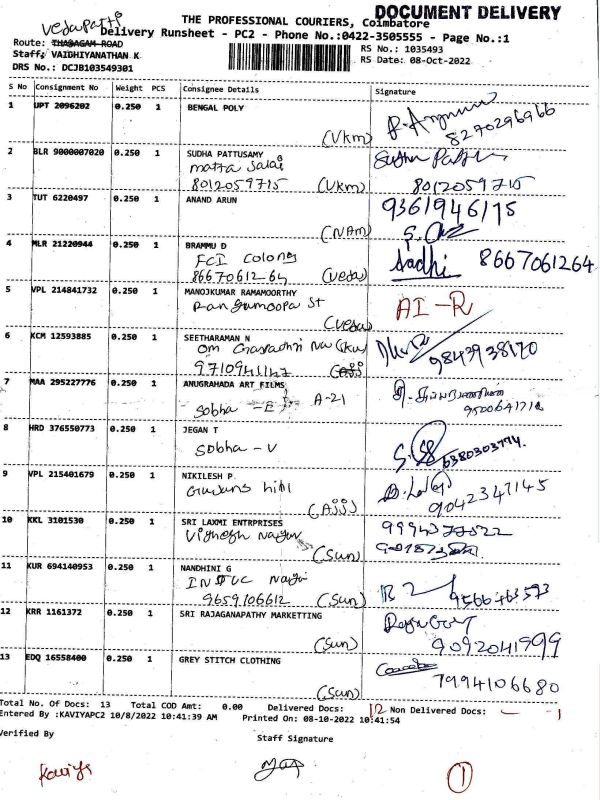 DOCUMENT DELIVERY
THE PROFESSIONAL COURIERS, Coimbatore
Delivery Runsheet - PC2 - Phone No.:0422-3505555 - Page No.:1
Route: THADAGAM ROAD
RS No.: 1035493
Staff: VAIDHIYANATHAN K
RS Date: 08-Oct-2022
DRS No.: DCJB103549301
S No Consignment No Weight PCS Consignee Details Signature
1 UPT 2096202 0.250 1 BENGAL POLY
(Vkm) 8270296966
2 BLR 9000007020 0.250 1 SUDHA PATTUSAMY
8012059715 (Vkm) 8012059715
3 TUT 6220497 0.250 1 ANAND ARUN 9361946115
(NAm)
4 MLR 21220944 0.250 1 BRAMMU D
FCI Colony Sadhi 8667061264
8667061264 (Veda)
5 VPL 214841732 0.250 1 MANOJKUMAR RAMAMOORTHY
AI-R
(Veda)
6 KCM 12593885 0.250 1 SEETHARAMAN N
9843938170
7 MAA 295227776 0.250 1 ANUGRAHADA ART FILMS
Sobha - E A-21
8 HRD 376550773 0.250 1 JEGAN T
Sobha - V 6380303794
9 VPL 215401679 0.250 1 NIKILESH P
9042347145
(Ajjs)
10 KKL 3101530 0.250 1 SRI LAXMI ENTRPRISES
(Sun)
11 KUR 694140953 0.250 1 NANDHINI G
9659106612 (Sun) 9566463573
12 KRR 1161372 0.250 1 SRI RAJAGANAPATHY MARKETTING
(Sun) 9092041999
13 EDQ 16558400 0.250 1 GREY STITCH CLOTHING
(Sun) 7994106680
Total No. Of Docs: 13 Total COD Amt: 0.00 Delivered Docs: 12 Non Delivered Docs: - 1
Entered By :KAVIYAPC2 10/8/2022 10:41:39 AM Printed On: 08-10-2022 10:41:54
Verified By Staff Signature
Kaviya
1